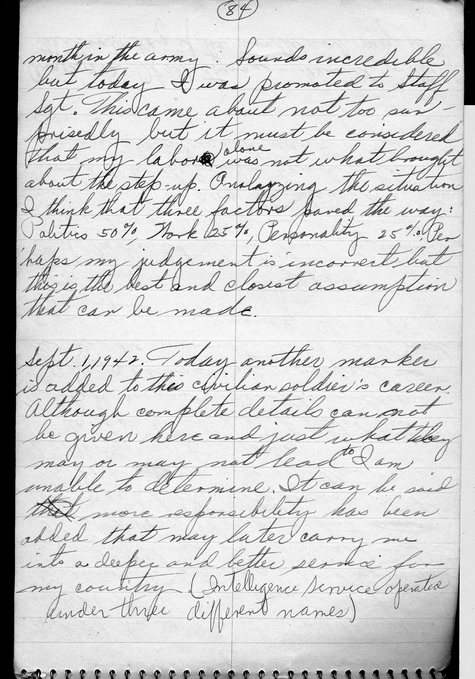 84
month in the army. Sounds incredible
but today I was promoted to Staff
Sgt. This came about not too sur-
prisedly but it must be considered
that my labor alone was not what brought
about the step-up. Analazying the situation
I think that three factors paved the way:
Politics 50%, Work 25%, Personality 25%. Per
haps my judgement is incorrect but
this is the best and closest assumption
that can be made.
Sept. 1, 1942. Today another marker
is added to this civilian soldier's career.
Although complete details can not
be given here and just what they
may or may not lead to I am
unable to determine. It can be said
that more responsibility has been
added that may later carry me
into a deeper and better service for
my country (Intelligence Service operated
under three different names)